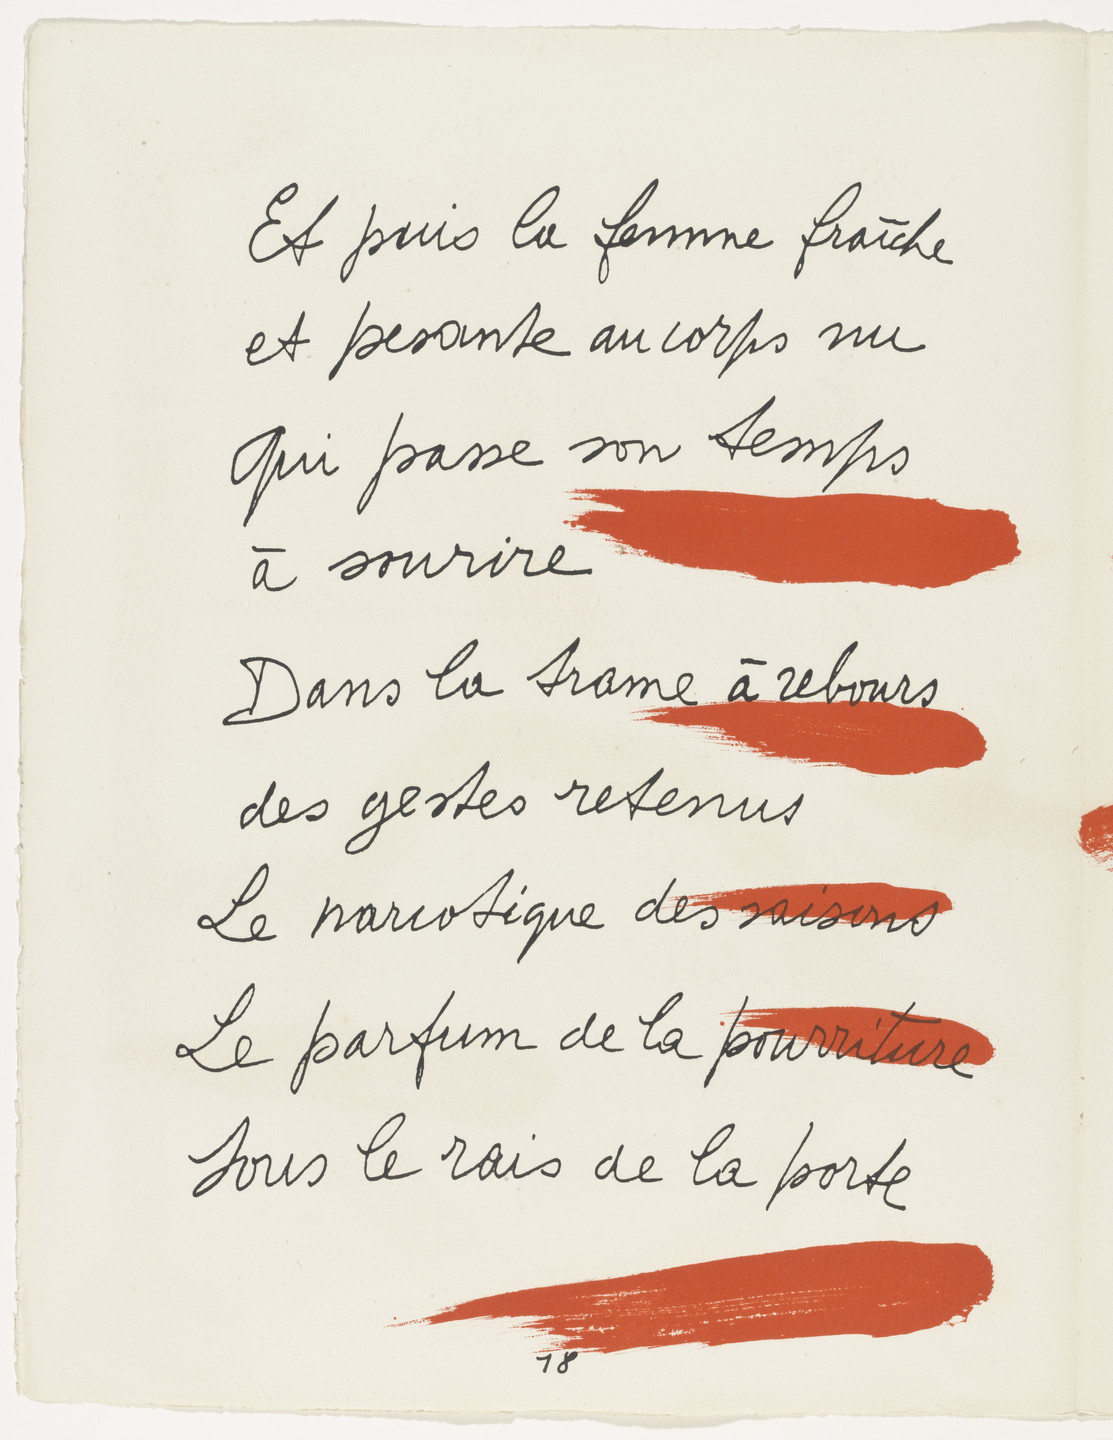 Et puis la femme fraîche
et pesante au corps nu
Qui passe son temps
à sourire
Dans la trame à rebours
des gestes retenus
Le narcotique des saisons
Le parfum de la pourriture
Sous le rais de la porte
18